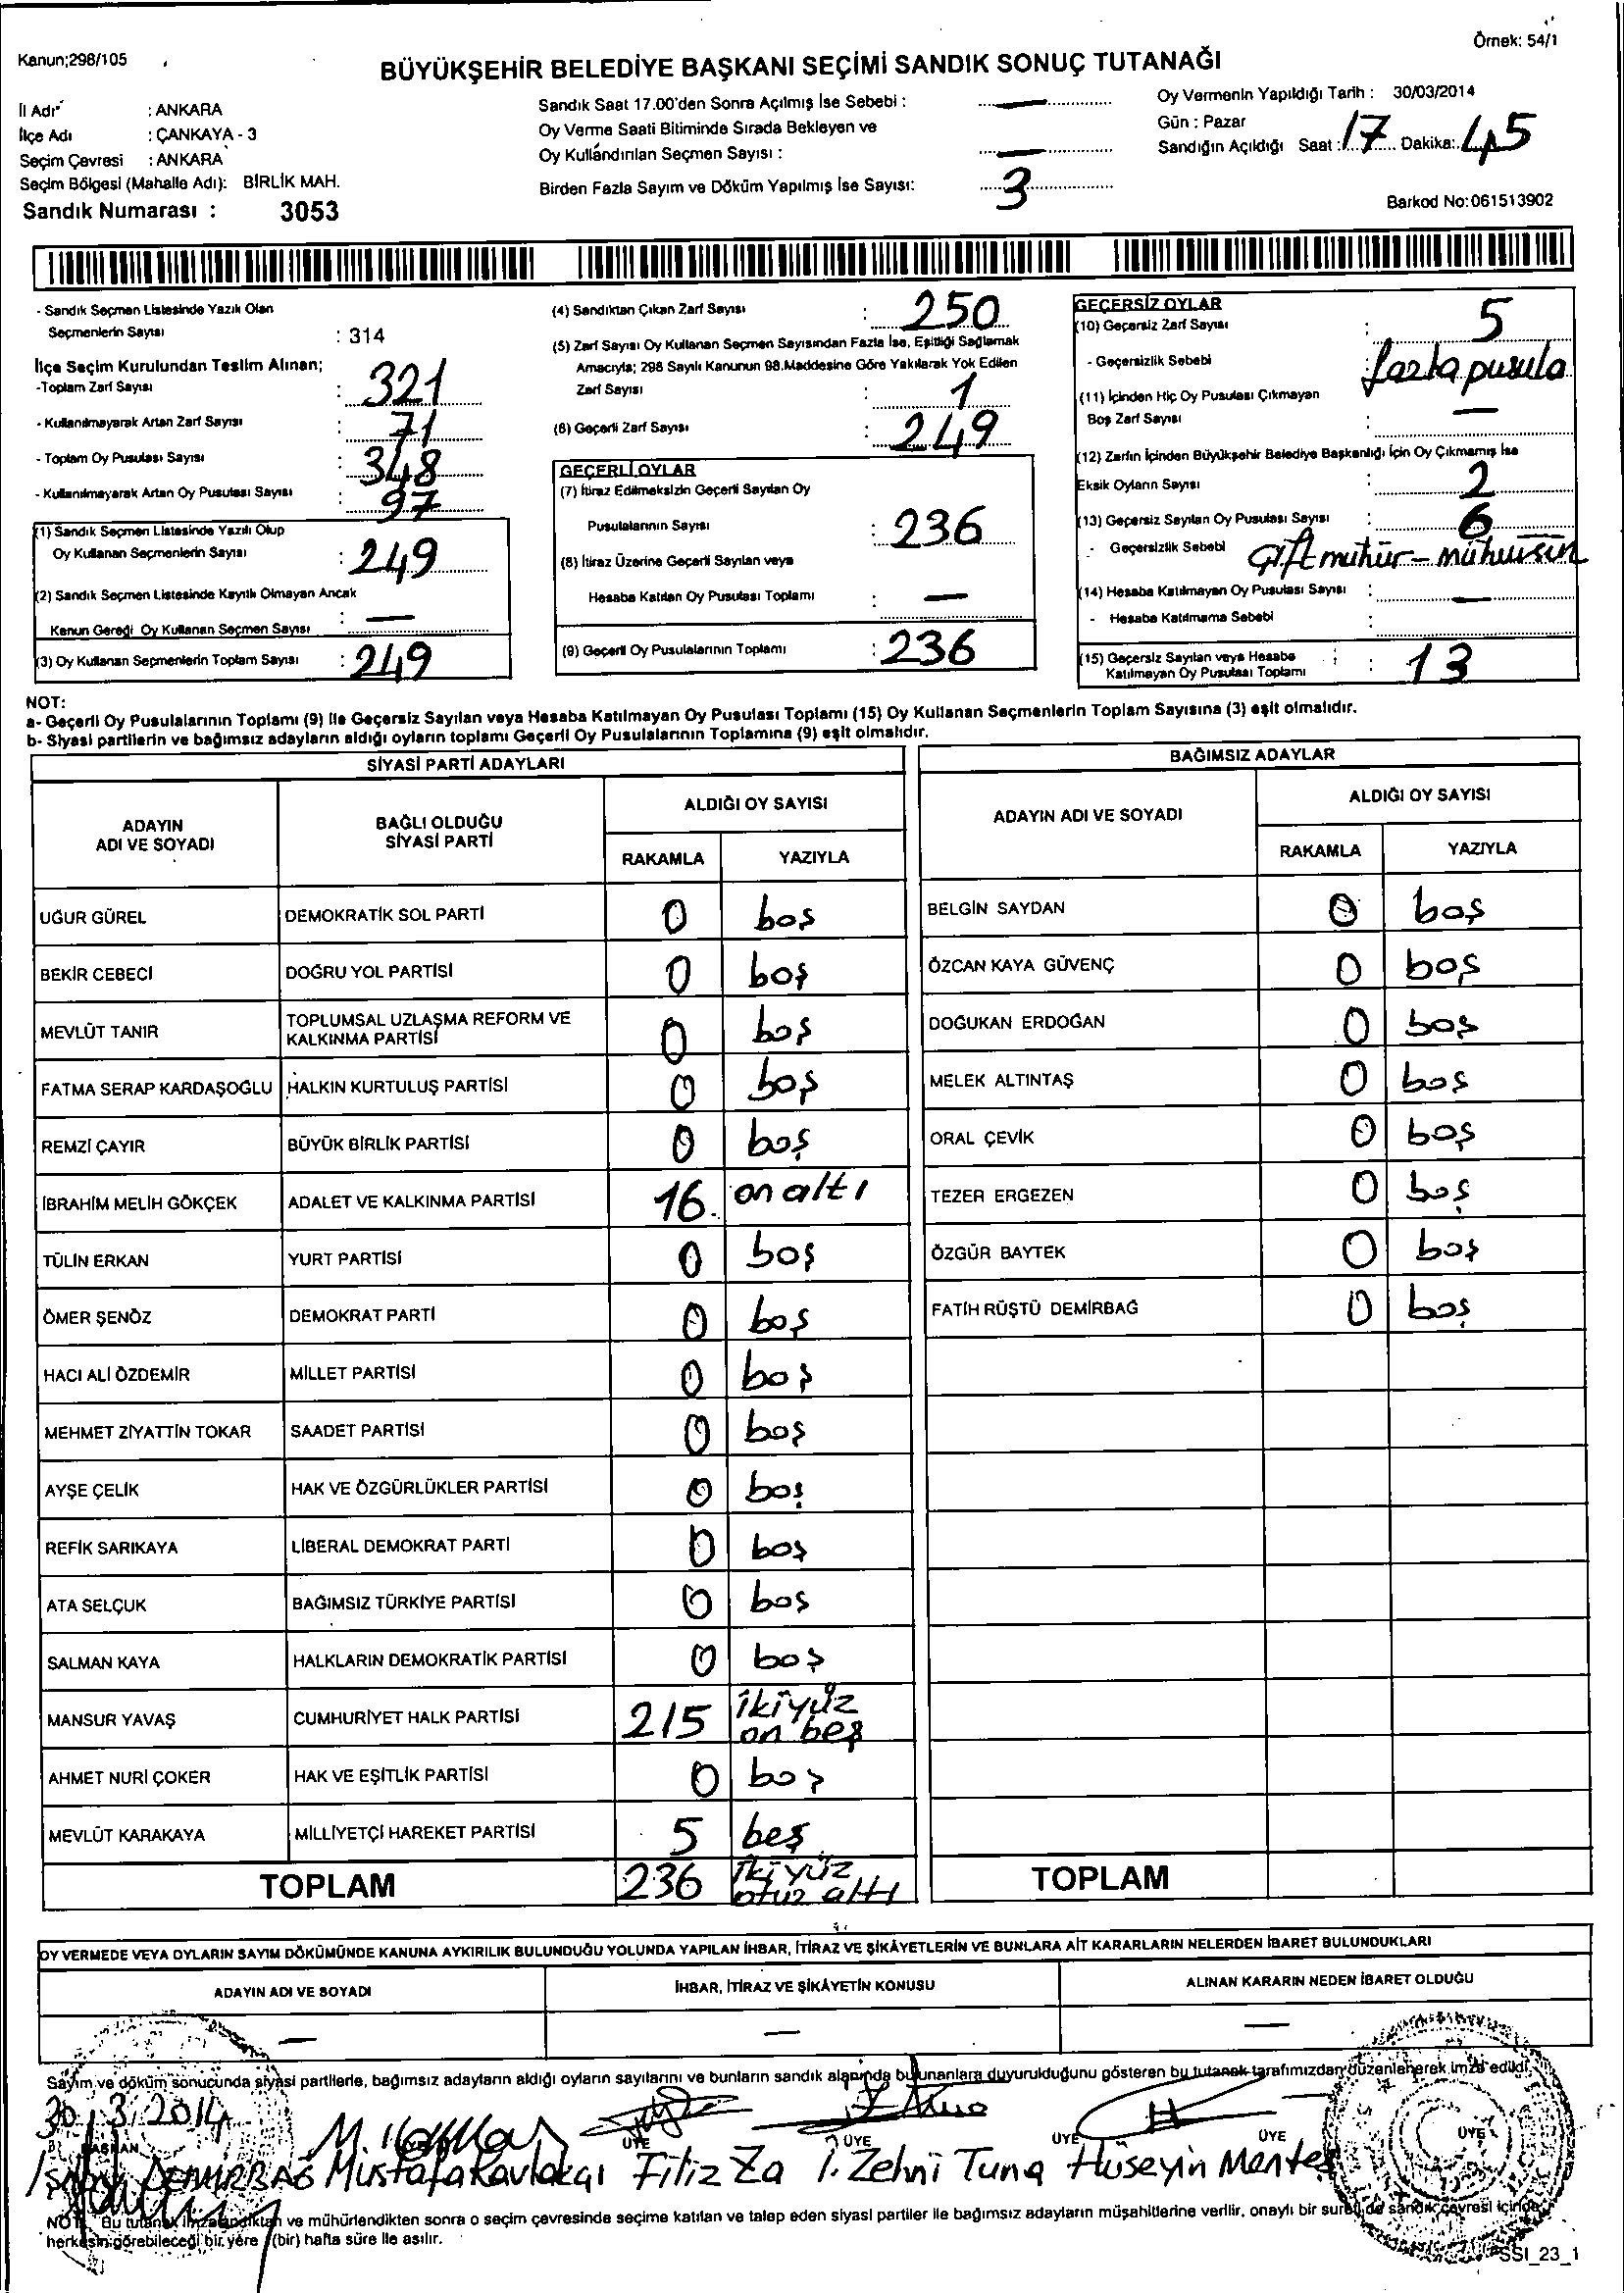 Örnek: 54/1
Kanun;298/105
BÜYÜKŞEHİR BELEDİYE BAŞKANI SEÇİMİ SANDIK SONUÇ TUTANAĞI
İl Adı : ANKARA
İlçe Adı : ÇANKAYA - 3
Seçim Çevresi : ANKARA
Seçim Bölgesi (Mahalle Adı): BİRLİK MAH.
Sandık Numarası : 3053
Sandık Saat 17.00'den Sonra Açılmış İse Sebebi : —
Oy Verme Saati Bitiminde Sırada Bekleyen ve
Oy Kullandırılan Seçmen Sayısı : —
Birden Fazla Sayım ve Döküm Yapılmış İse Sayısı: 3
Oy Vermenin Yapıldığı Tarih : 30/03/2014
Gün : Pazar
Sandığın Açıldığı Saat : 17 Dakika: 45
Barkod No:061513902
- Sandık Seçmen Listesinde Yazılı Olan
Seçmenlerin Sayısı : 314
İlçe Seçim Kurulundan Teslim Alınan;
-Toplam Zarf Sayısı : 321
- Kullanılmayarak Artan Zarf Sayısı : 71
- Toplam Oy Pusulası Sayısı : 348
- Kullanılmayarak Artan Oy Pusulası Sayısı : 97
(1) Sandık Seçmen Listesinde Yazılı Olup
Oy Kullanan Seçmenlerin Sayısı : 249
(2) Sandık Seçmen Listesinde Kayıtlı Olmayan Ancak
Kanun Gereği Oy Kullanan Seçmen Sayısı : —
(3) Oy Kullanan Seçmenlerin Toplam Sayısı : 249
(4) Sandıktan Çıkan Zarf Sayısı : 250
(5) Zarf Sayısı Oy Kullanan Seçmen Sayısından Fazla İse, Eşitliği Sağlamak
Amacıyla; 298 Sayılı Kanunun 98.Maddesine Göre Yakılarak Yok Edilen
Zarf Sayısı : 1
(6) Geçerli Zarf Sayısı : 249
GEÇERLİ OYLAR
(7) İtiraz Edilmeksizin Geçerli Sayılan Oy
Pusulalarının Sayısı : 236
(8) İtiraz Üzerine Geçerli Sayılan veya
Hesaba Katılan Oy Pusulası Toplamı : —
(9) Geçerli Oy Pusulalarının Toplamı : 236
GEÇERSİZ OYLAR
(10) Geçersiz Zarf Sayısı : 5
- Geçersizlik Sebebi fazla pusula
(11) İçinden Hiç Oy Pusulası Çıkmayan
Boş Zarf Sayısı : —
(12) Zarfın İçinden Büyükşehir Belediye Başkanlığı İçin Oy Çıkmamış İse
Eksik Oyların Sayısı : 2
(13) Geçersiz Sayılan Oy Pusulası Sayısı : 6
- Geçersizlik Sebebi çift mühür - mühürsüz
(14) Hesaba Katılmayan Oy Pusulası Sayısı : —
- Hesaba Katılmama Sebebi :
(15) Geçersiz Sayılan veya Hesaba
Katılmayan Oy Pusulası Toplamı : 13
NOT:
a- Geçerli Oy Pusulalarının Toplamı (9) ile Geçersiz Sayılan veya Hesaba Katılmayan Oy Pusulası Toplamı (15) Oy Kullanan Seçmenlerin Toplam Sayısına (3) eşit olmalıdır.
b- Siyasi partilerin ve bağımsız adayların aldığı oyların toplamı Geçerli Oy Pusulalarının Toplamına (9) eşit olmalıdır.
SİYASİ PARTİ ADAYLARI
ADAYIN ADI VE SOYADI BAĞLI OLDUĞU SİYASİ PARTİ ALDIĞI OY SAYISI
RAKAMLA YAZIYLA
UĞUR GÜREL DEMOKRATİK SOL PARTİ 0 boş
BEKİR CEBECİ DOĞRU YOL PARTİSİ 0 boş
MEVLÜT TANIR TOPLUMSAL UZLAŞMA REFORM VE KALKINMA PARTİSİ 0 boş
FATMA SERAP KARDAŞOĞLU HALKIN KURTULUŞ PARTİSİ 0 boş
REMZİ ÇAYIR BÜYÜK BİRLİK PARTİSİ 0 boş
İBRAHİM MELİH GÖKÇEK ADALET VE KALKINMA PARTİSİ 16 on altı
TÜLİN ERKAN YURT PARTİSİ 0 boş
ÖMER ŞENÖZ DEMOKRAT PARTİ 0 boş
HACI ALİ ÖZDEMİR MİLLET PARTİSİ 0 boş
MEHMET ZİYATTİN TOKAR SAADET PARTİSİ 0 boş
AYŞE ÇELİK HAK VE ÖZGÜRLÜKLER PARTİSİ 0 boş
REFİK SARIKAYA LİBERAL DEMOKRAT PARTİ 0 boş
ATA SELÇUK BAĞIMSIZ TÜRKİYE PARTİSİ 0 boş
SALMAN KAYA HALKLARIN DEMOKRATİK PARTİSİ 0 boş
MANSUR YAVAŞ CUMHURİYET HALK PARTİSİ 215 ikiyüz on beş
AHMET NURİ ÇOKER HAK VE EŞİTLİK PARTİSİ 0 boş
MEVLÜT KARAKAYA MİLLİYETÇİ HAREKET PARTİSİ 5 beş
TOPLAM 236 ikiyüz otuz altı
BAĞIMSIZ ADAYLAR
ADAYIN ADI VE SOYADI ALDIĞI OY SAYISI
RAKAMLA YAZIYLA
BELGİN SAYDAN 0 boş
ÖZCAN KAYA GÜVENÇ 0 boş
DOĞUKAN ERDOĞAN 0 boş
MELEK ALTINTAŞ 0 boş
ORAL ÇEVİK 0 boş
TEZER ERGEZEN 0 boş
ÖZGÜR BAYTEK 0 boş
FATİH RÜŞTÜ DEMİRBAĞ 0 boş
TOPLAM
OY VERMEDE VEYA OYLARIN SAYIM DÖKÜMÜNDE KANUNA AYKIRILIK BULUNDUĞU YOLUNDA YAPILAN İHBAR, İTİRAZ VE ŞİKÂYETLERİN VE BUNLARA AİT KARARLARIN NELERDEN İBARET BULUNDUKLARI
ADAYIN ADI VE SOYADI İHBAR, İTİRAZ VE ŞİKÂYETİN KONUSU ALINAN KARARIN NEDEN İBARET OLDUĞU
— — —
Sayım ve döküm sonucunda siyasi partilerle, bağımsız adayların aldığı oyların sayılarını ve bunların sandık alanında bulunanlara duyurulduğunu gösteren bu tutanak tarafımızdan düzenlenerek imza edildi.
30.3.2014
BAŞKAN ÜYE ÜYE ÜYE ÜYE ÜYE
DEMİRBAĞ Mustafa Kavlakçı Filiz Za İ. Zehni Tuna Hüseyin Menteş
NOT: Bu tutanak imzalandıktan ve mühürlendikten sonra o seçim çevresinde seçime katılan ve talep eden siyasi partiler ile bağımsız adayların müşahitlerine verilir, onaylı bir sureti de sandık çevresi içinde
herkesin görebileceği bir yere (bir) hafta süre ile asılır.
SSI_23_1